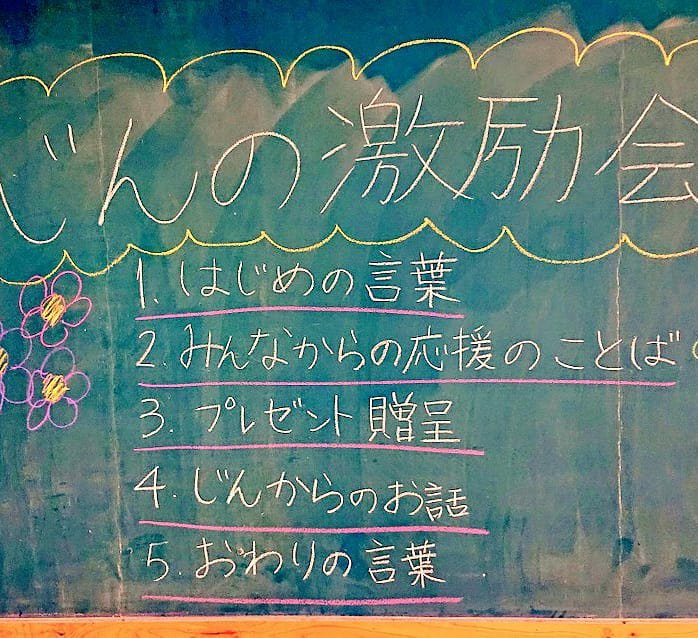 じんの激励会
1. はじめの言葉
2. みんなからの応援のことば
3. プレゼント贈呈
4. じんからのお話
5. おわりの言葉